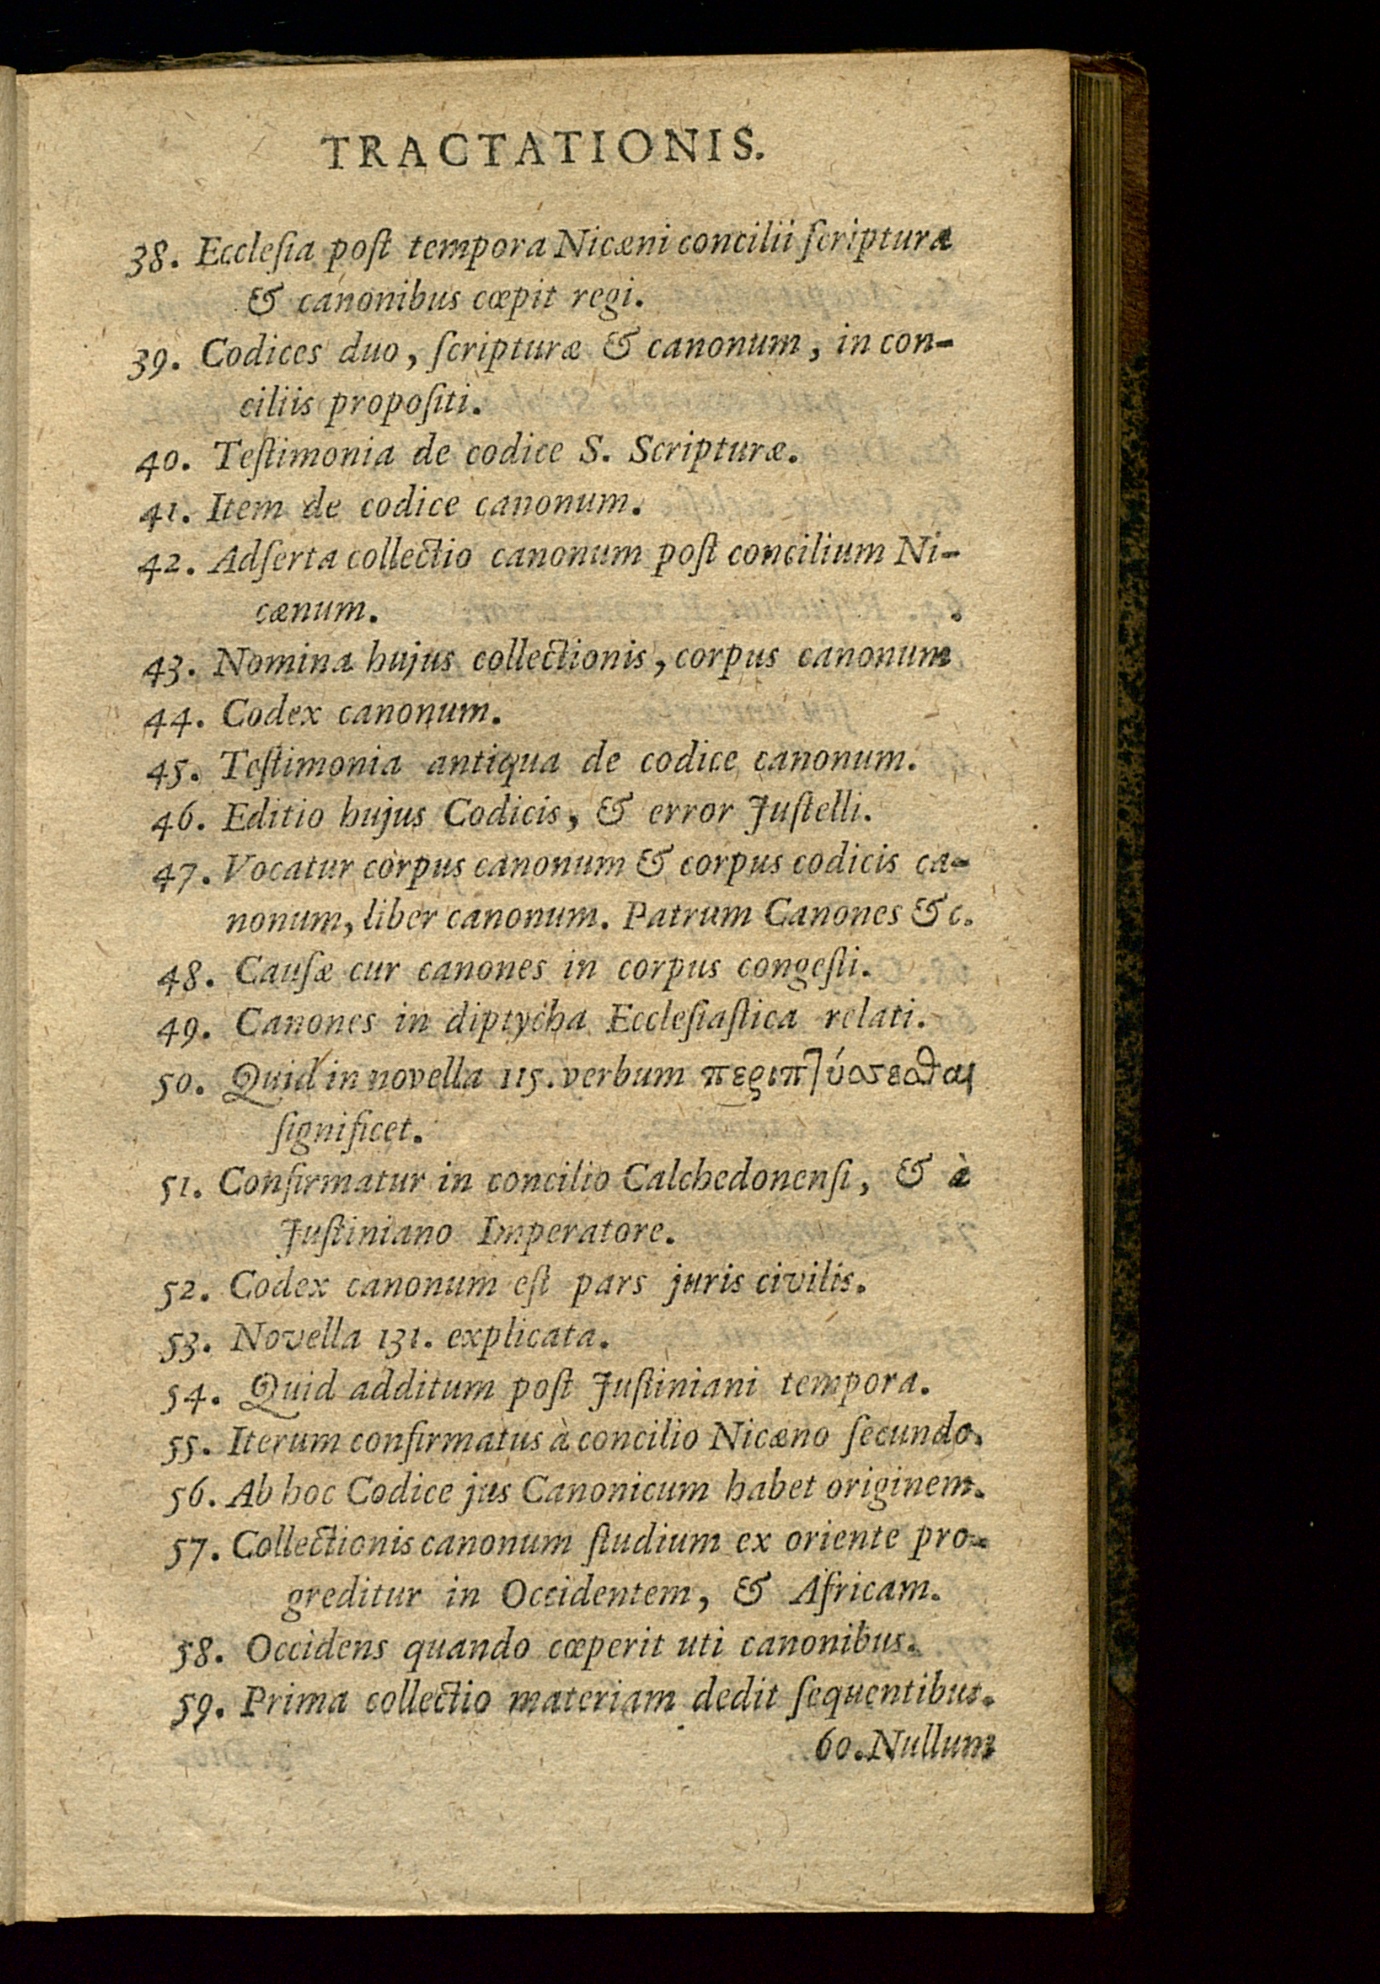 TRACTATIONIS.
38. Ecclesia post tempora Nicæni concilii scripturæ
& canonibus cœpit regi.
39. Codices duo, scripturæ & canonum, in con-
ciliis propositi.
40. Testimonia de codice S. Scripturæ.
41. Item de codice canonum.
42. Adserta collectio canonum post concilium Ni-
cænum.
43. Nomina hujus collectionis, corpus canonum
44. Codex canonum.
45. Testimonia antiqua de codice canonum.
46. Editio hujus Codicis, & error Justelli.
47. Vocatur corpus canonum & corpus codicis ca-
nonum, liber canonum. Patrum Canones &c.
48. Causæ cur canones in corpus congesti.
49. Canones in diptycha Ecclesiastica relati.
50. Quid in novella 115. verbum περιπτύσσεσθαι
significet.
51. Confirmatur in concilio Calchedonensi, & à
Justiniano Imperatore.
52. Codex canonum est pars juris civilis.
53. Novella 131. explicata.
54. Quid additum post Justiniani tempora.
55. Iterum confirmatus à concilio Nicæno secundo.
56. Ab hoc Codice jus Canonicum habet originem.
57. Collectionis canonum studium ex oriente pro-
greditur in Occidentem, & Africam.
58. Occidens quando cœperit uti canonibus.
59. Prima collectio materiam dedit sequentibus.
60. Nullum